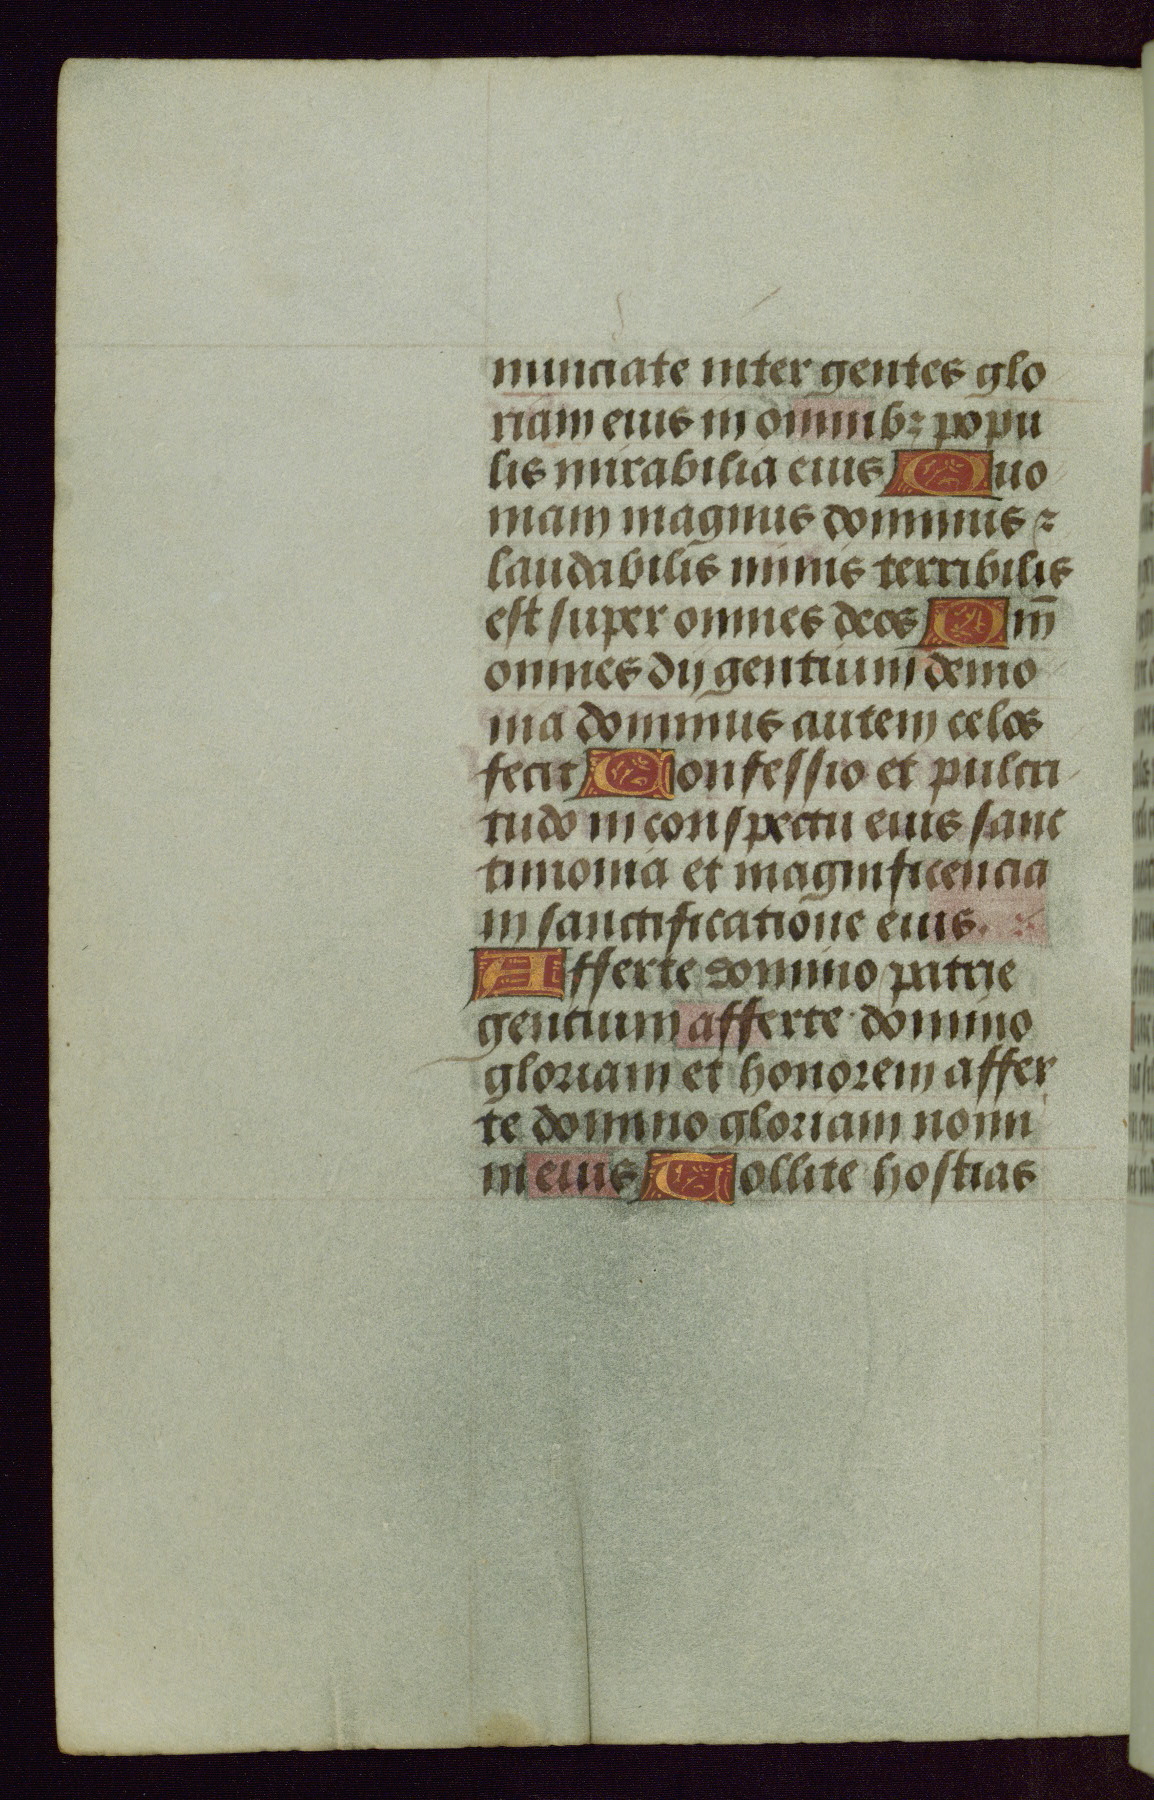 nunciate inter gentes glo
riam eius in omnibꝫ popu
lis mirabilia eius Quo
niam magnus dominus ⁊
laudabilis nimis terribilis
est super omnes deos Qm̄
omnes dij gentium demo
nia dominus autem celos
fecit Confessio et pulcri
tudo in conspectu eius sanc
timonia et magnificencia
in sanctificatione eius.
Afferte domino patrie
gentium afferte domino
gloriam et honorem affer
te domino gloriam nomi
ni eius Tollite hostias